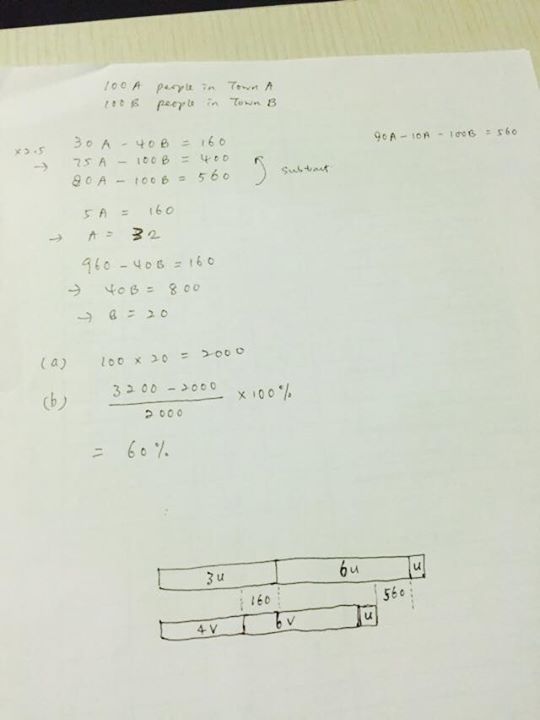 100 A people in Town A
100 B people in Town B
30 A - 40B = 160
90A - 10A - 100B = 560
×2.5 → 75A - 100B = 400
80A - 100B = 560
subtract
5A = 160
→ A = 32
960 - 40B = 160
→ 40B = 800
→ B = 20
(a) 100 × 20 = 2000
(b) 3200 - 2000 / 2000 × 100%
= 60%
3u 6u u
160 560
4V 6V u